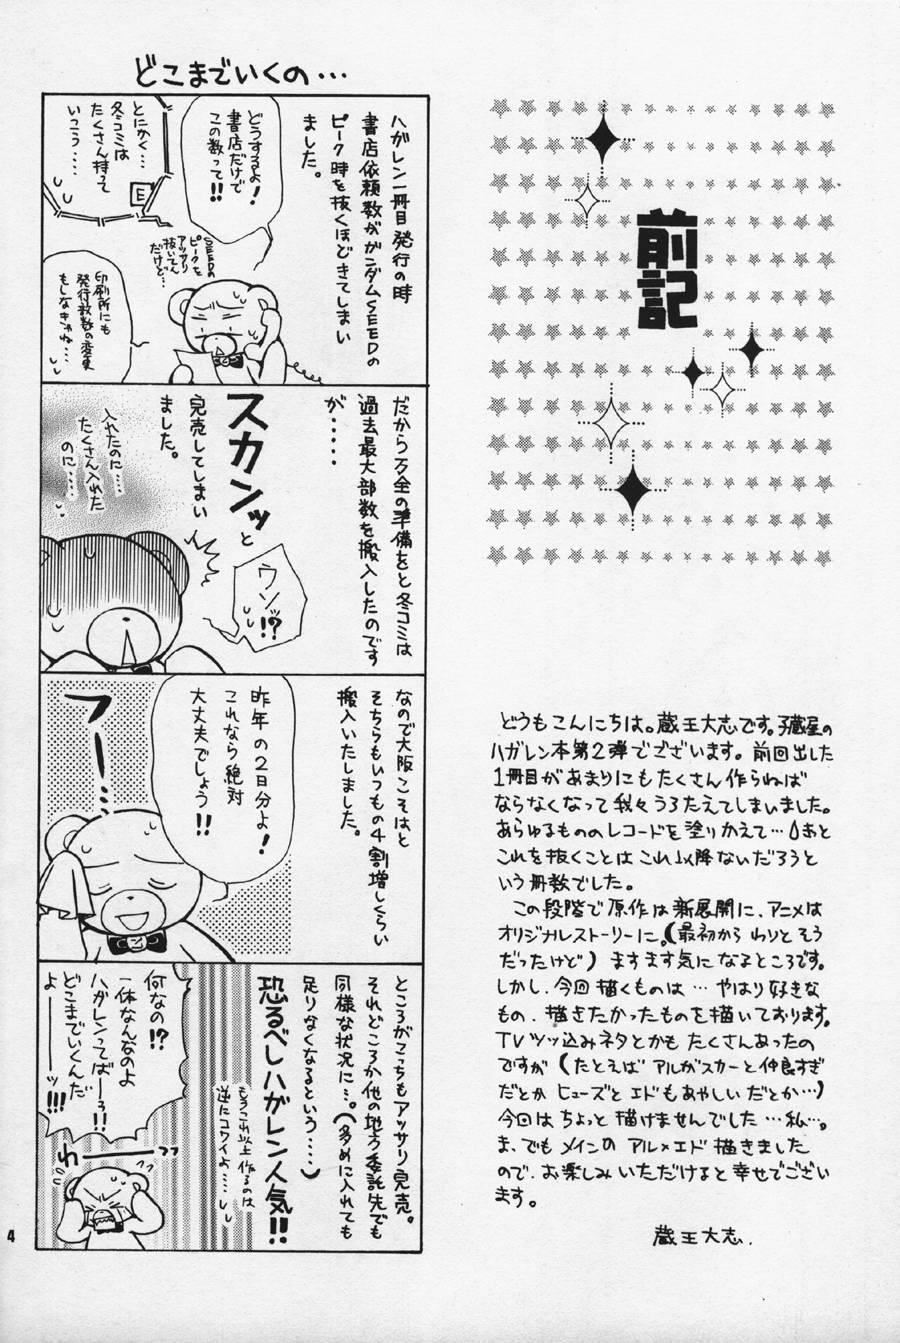 前記
どうもこんにちは。蔵王大志です。子蔵屋の
ハガレン本第2弾でございます。前回出した
1冊目があまりにもたくさん作らねば
ならなくなって我々うろたえてしまいました。
あらゆるもののレコードを塗りかえて…あと
これを抜くことはこれ以降ないだろうと
いう冊数でした。
この段階で原作は新展開に、アニメは
オリジナルストーリーに。(最初からわりとそう
だったけど)ますます気になるところです。
しかし、今回描くものは…やはり好きな
もの、描きたかったものを描いております。
TVツッ込みネタとかもたくさんあったの
ですが(たとえばアルがスカーと仲良すぎ
だとかヒューズとエドもあやしいだとか…)
今回はちょっと描けませんでした…私…。
ま、でもメインのアル×エド描きました
ので、お楽しみいただけると幸せでござい
ます。
蔵王大志.
どこまでいくの…
ハガレン一冊目発行の時
書店依頼数がガンダムSEEDの
ピーク時を抜くほどきてしまい
ました。
どうするよ!
書店だけで
この数って!!
とにかく…
冬コミは
たくさん持って
いこう……
E
SEEDの
ピークを
アッサリ
抜いてん
だけど…
印刷所にも
発行部数の変更
もしなきゃね…
だから万全の準備をと冬コミは
過去最大部数を搬入したのです
が……
スカンッと
完売してしまい
ました。
ウソッ!?
入れたのに……
たくさん入れた
のに……
なので大阪こそはと
そちらもいつもの4割増しくらい
搬入いたしました。
昨年の2日分よ!
これなら絶対
大丈夫でしょう!!
フーー…
ところがこっちもアッサリ完売。
それどころか他の地方委託先でも
同様な状況に…。(多めに入れても
足りなくなるという……)
恐るべしハガレン人気!!
もうこれ以上作るのは
逆にコワイよ……
何なの!?
一体なんなのよ
ハガレンってばーっ!!
どこまでいくんだ
よーーッ!!!
わーーーっっ
4